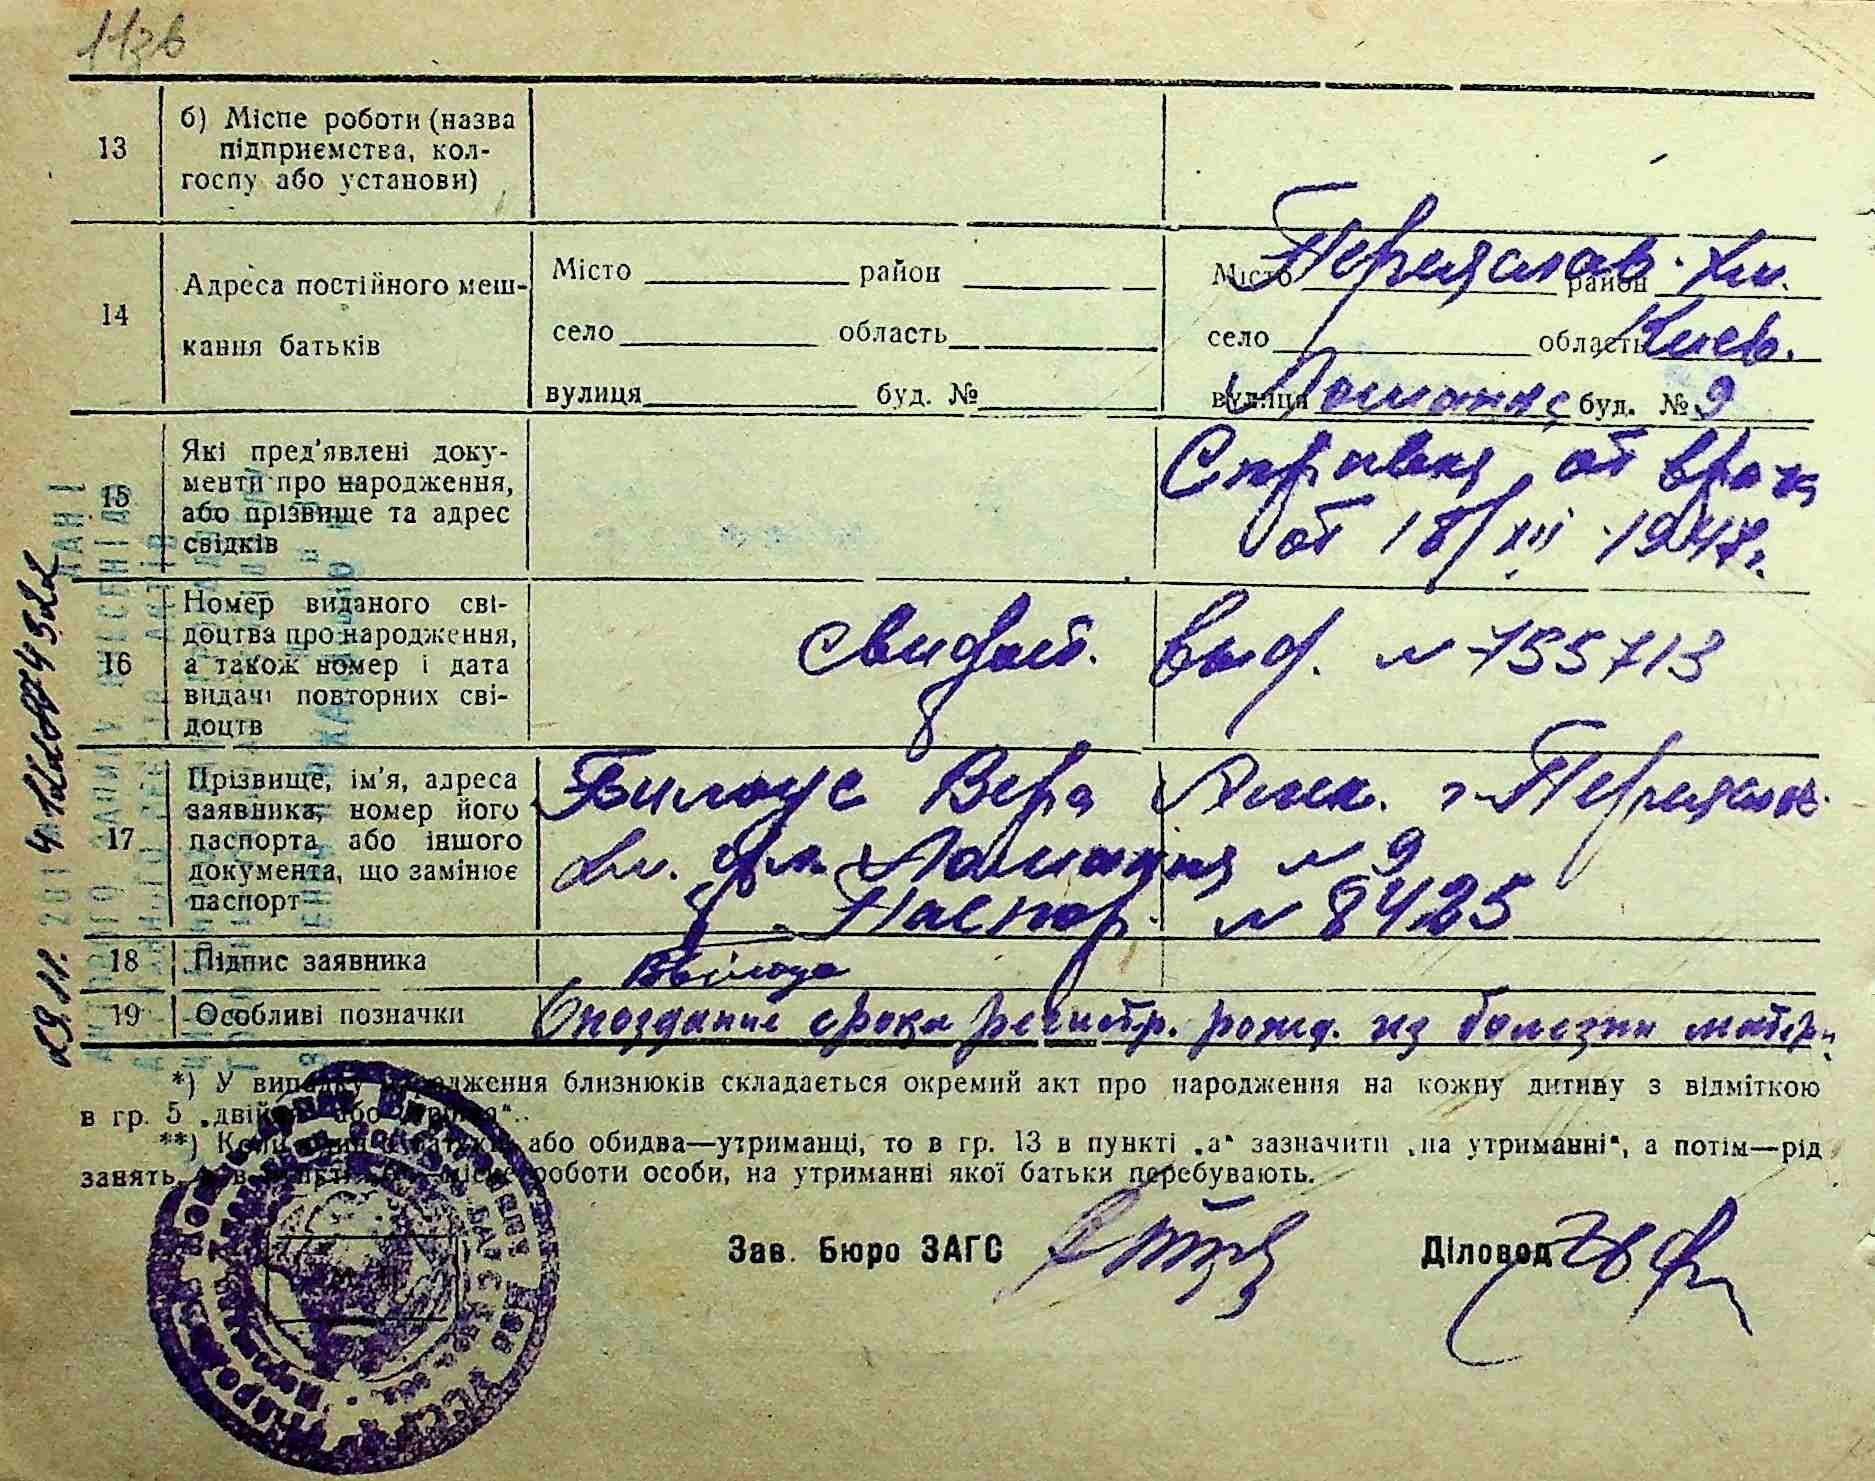 113в
13
б) Місце роботи (назва
підприємства, кол-
госпу або установи)
14
Адреса постійного меш-
кання батьків
Місто район
село область
вулиця буд. №
Місто Переяслав. Хм. район
село область Киев.
вулиця буд. № 9
15
Які пред'явлені доку-
менти про народження,
або прізвище та адрес
свідків
Справка от врача
от 18/XII 1947г.
16
Номер виданого сві-
доцтва про народження,
а також номер і дата
видачі повторних сві-
доцтв
Свидет. выд. № 755713
17
Прізвище, ім'я, адреса
заявника, номер його
паспорта або іншого
документа, що замінює
паспорт
Билоус Вера г. Переяслав.
Хм. ул. № 9
Паспор. № 8425
18
Підпис заявника
19
Особливі позначки
Опоздание срока регистр. рожд. из болезни матери
*) У випадку народження близнюків складається окремий акт про народження на кожну дитину з відміткою
в гр. 5 „двійня або трійня“.
**) Коли один з батьків або обидва—утриманці, то в гр. 13 в пункті „а“ зазначити „на утриманні“, а потім—рід
занять, в пункті місце роботи особи, на утриманні якої батьки перебувають.
Зав. Бюро ЗАГС
Діловод